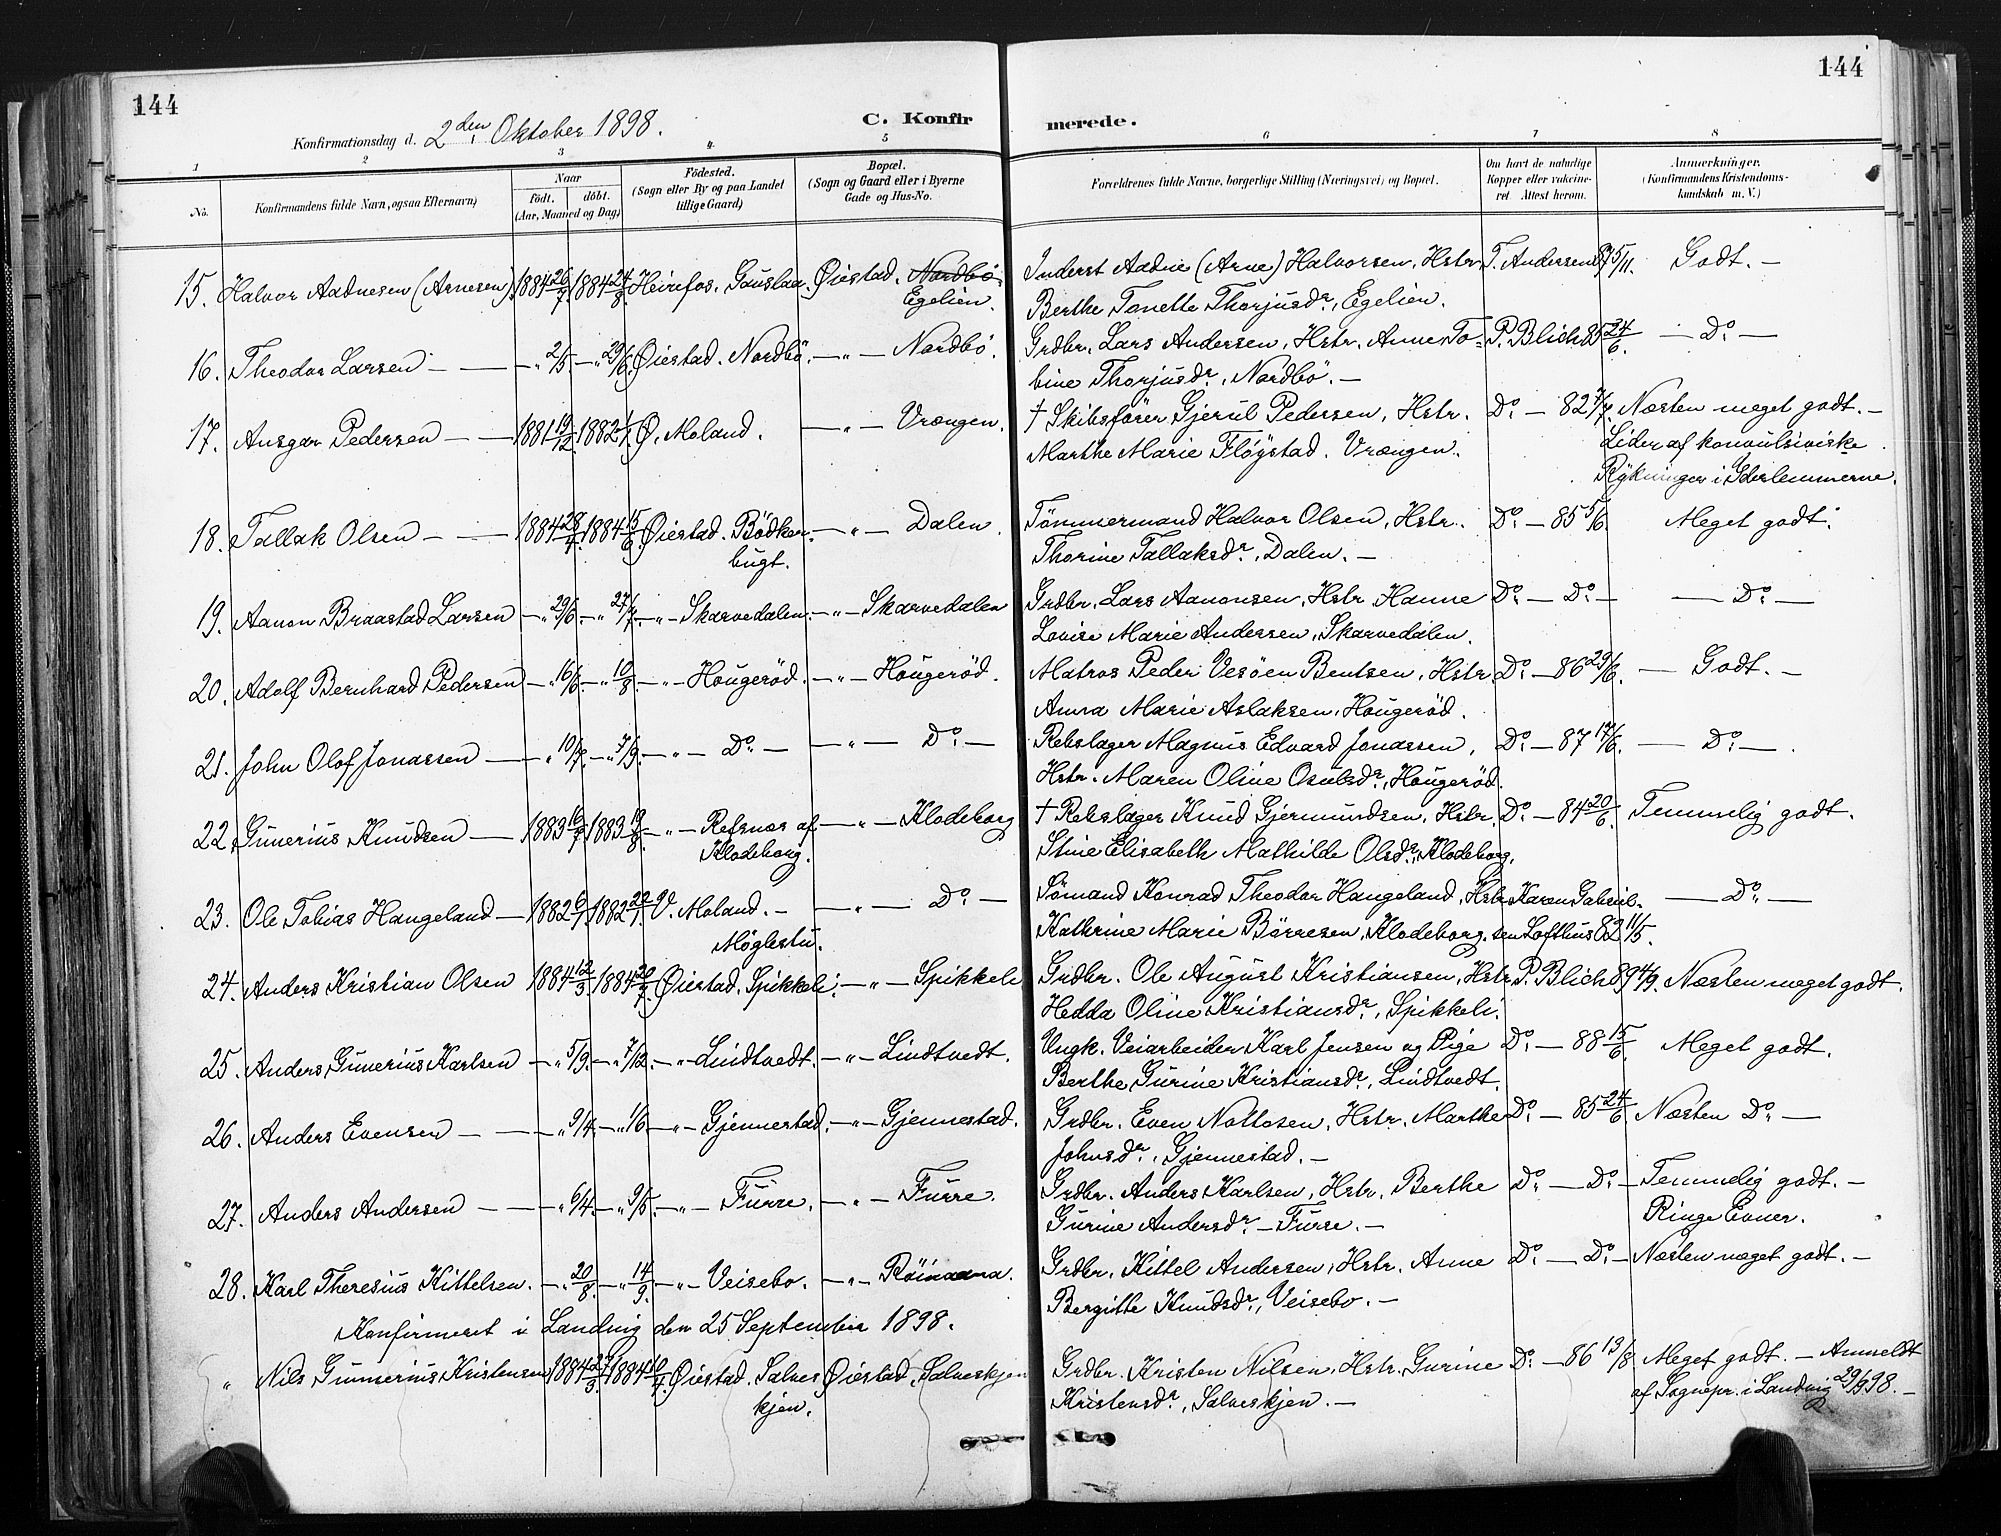 144
144
Konfirmationsdag d. 2den Oktober 1898.
C. Konfirmerede.
1 2 3 4 5 6 7 8
No. Konfirmandens fulde Navn, ogsaa Efternavn) Naar født. døbt. (Aar, Maaned og Dag) Fødested. (Sogn eller By og paa Landet tillige Gaard) Bopæl. (Sogn og Gaard eller i Byerne Gade og Hus-No. Forældrenes fulde Navne, borgerlige Stilling (Næringsvei) og Bopæl. Om havt de naturlige Kopper eller vakcineret. Attest herom. Anmærkninger. (Konfirmandens Kristendomskundskab m. V.)
15. Halvor Aadnesen (Arnesen) 1884 26/7. 1884 24/8. Heirefos. Gauslaa. Øiestad. Nordbö. Inderst Aadne (Arne) Halvorsen, Hstr. T. Andersen 87 5/11. Godt. —
Egelien. Berthe Tonette Thorjusdr., Egelien.
16. Theodor Larsen — — " 2/5. — " 29/6. Øiestad. Nordbö. — " — Nordbö. Grdbr. Lars Andersen, Hstr. Anne To- P. Blich 85 24/6. — Do. —
bine Thorjusdr., Nordbö. —
17. Ansgar Pedersen — — 1881 19/12. 1882 1/1. Ø. Moland. — " — Vrængen. † Skibsfører Gjerul Pedersen, Hstr. Do. — 82 7/7. Næsten meget godt. —
Marthe Marie Fløystad. Vrængen. Lider af konvulsiviske
Rykninger i Yderlemmerne.
18. Tallak Olsen — — 1884 28/4. 1884 15/6. Øiestad. Bödker- — " — Dalen. Tömmermand Halvor Olsen, Hstr. Do. — 85 5/6. Meget godt.
bugt. Thorine Tallaksdr., Dalen. —
19. Aanon Braastad Larsen — " 29/6. — " 27/7. — " — Skarvedalen. — " — Skarvedalen Grdbr. Lars Aanonsen, Hstr. Hanne Do. — Do. — — Do. —
Lovise Marie Andersen, Skarvedalen.
20. Adolf Bernhard Pedersen — " 16/6. — " 10/8. — " — Hougeröd. — " — Hougeröd. Matros Peder Vesöen Bentsen, Hstr. Do. — 86 29/6. — Godt. —
Anna Marie Aslaksen, Hougeröd.
21. John Olof Jonassen — " 10/7. — " 7/9. — " — Do. — — " — Do. — Rebslager Magnus Edvard Jonassen, Do. — 87 17/6. — Do. —
Hstr. Maren Oline Osulsdr., Hougeröd.
22. Gunerius Knudsen — 1883 16/7. 1883 19/8. — " — Refsnes af — " — Klodeborg † Rebslager Knud Gjermundsen, Hstr. Do. — 84 20/6. Temmelig godt.
Klodeborg. Stine Elisabeth Mathilde Olsdr., Klodeborg.
23. Ole Tobias Hangeland — 1882 6/1. 1882 22/1. V. Moland. — — " — Do. — Sömand Konrad Theodor Hangeland, Hstr. Karen Gabriel- — Do. —
Møglestu. Kathrine Marie Börresen, Klodeborg. sen Lofthus 82 11/5.
24. Anders Kristian Olsen 1884 12/3. 1884 20/7. Øiestad. Spikkeli. — " — Spikkeli Grdbr. Ole August Kristiansen, Hstr. P. Blich 89 4/9. Næsten meget godt.
Hedda Oline Kristiansdr., Spikkeli.
25. Anders Gunerius Karlsen — " 5/9. — " 7/12. — " — Lindtvedt. — " — Lindtvedt. Ungk. Veiarbeider Karl Jensen og Pige Do. — 88 15/6. Meget godt.
Berthe Gurine Kristiansdr., Lindtvedt.
26. Anders Evensen — — " 9/4. — " 1/6 — " — Gjennestad. — " — Gjennestad. Grdbr. Even Nottosen, Hstr. Marthe Do. — 85 24/6. Næsten Do. —
Johnsdr., Gjennestad. —
27. Anders Andersen — — " 6/4. — " 9/5. — " — Furre. — " — Furre. Grdbr. Anders Karlsen, Hstr. Berthe Do. — Do. — Temmelig godt. —
Gurine Andersdr. — Furre. — Ringe Evner.
28. Karl Theresius Kittelsen. — " 20/8. — " 14/9. — " — Veisebo. — " — Grdbr. Kittel Andersen, Hstr. Anne Do. — Do. — Næsten meget godt. —
Bergitte Knudsdr., Veisebo. —
Konfirmeret i Landvig den 25 September 1898.
" Nils Gunnerius Kristensen 1884 27/3. 1884 Øiestad. Salves Øiestad. Salveskjen Grdbr. Kristen Nilsen, Hstr. Gurine Do. — 86 13/8 Meget godt. — Anmeldt
kjen. Kristensdr., Salveskjen. — af Sognepr. i Landvig 29/9 98. —